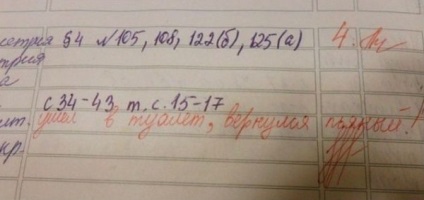 етрия §4 №105, 108, 122(б), 125(а) 4
трия
а
с 34-43 т. с. 15-17
лит. ушел в туалет, вернулся пьяный!